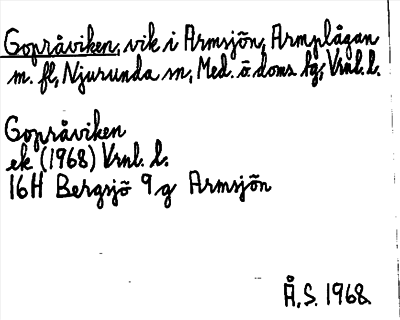 Gopråviken, vik i Armsjön, Armplågan
m. fl, Njurunda sn, Med. ö. doms lg, Vrnl. l.
Gopråviken
ek (1968) Vrnl. l.
16H Bergsjö 9g Armsjön
Å. S. 1968